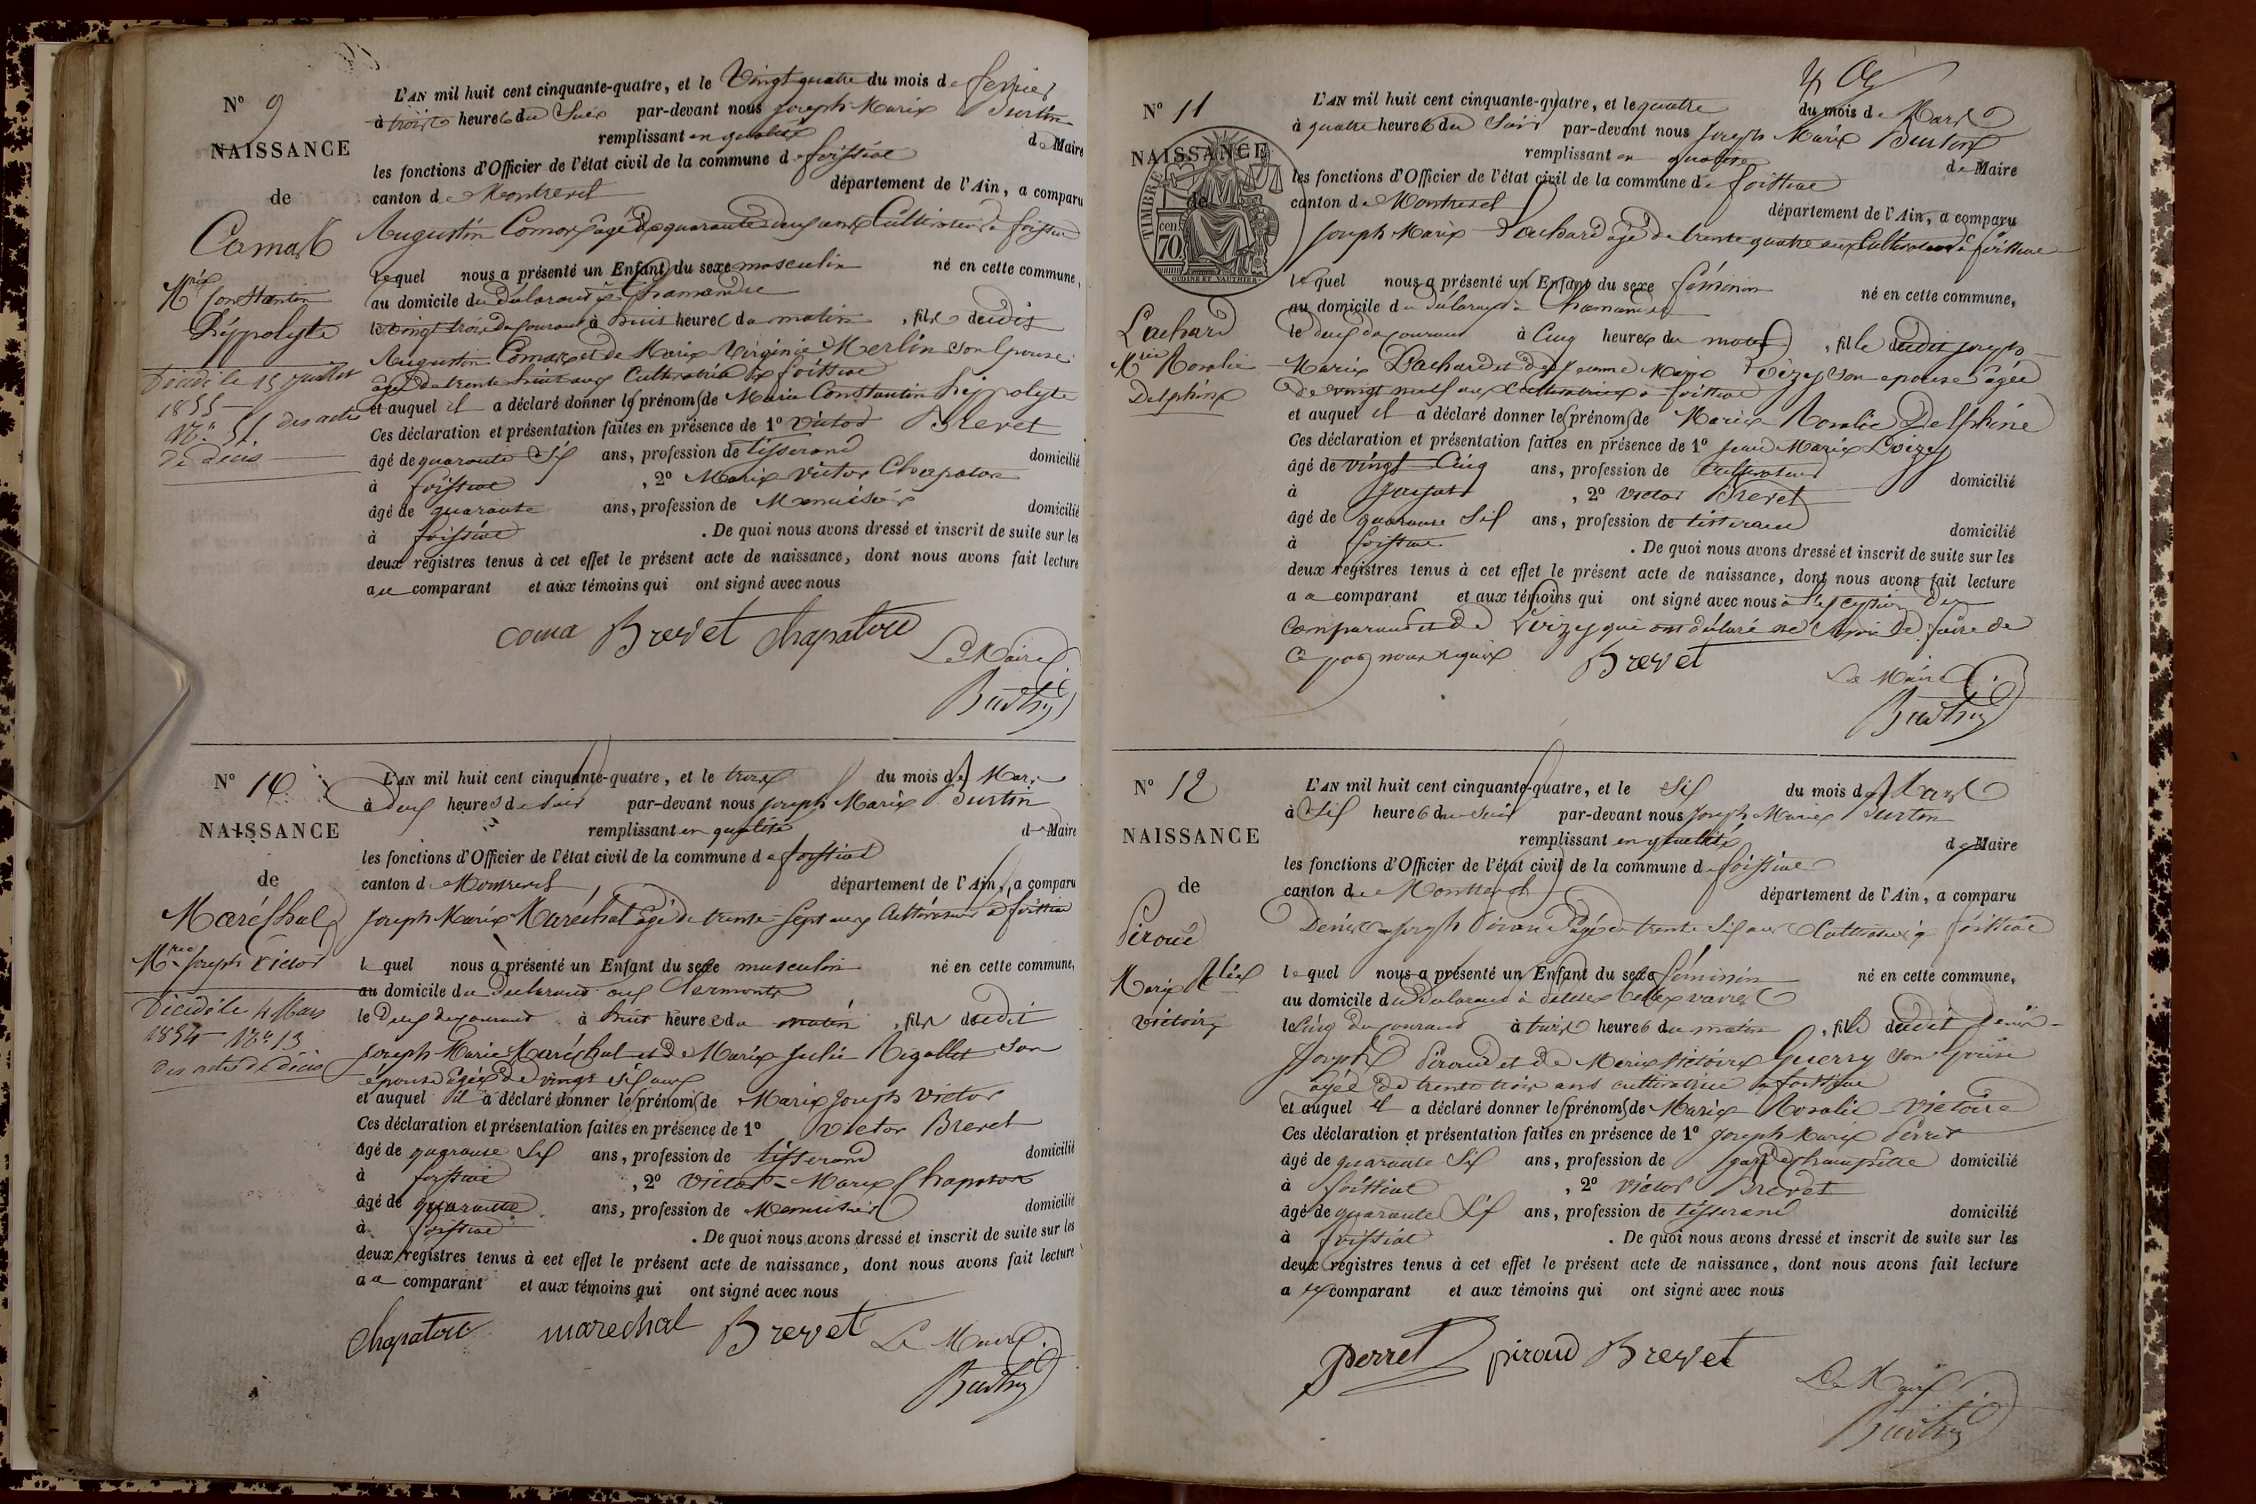 N° 9
NAISSANCE
de
Comas
Mrie
Constantin
hippolyte
Décédé le 15 juillet
1855
N° 51 des actes
de décès
L'AN mil huit cent cinquante-quatre, et le Vingt quatre du mois de fevrier
à trois heures du Soir par-devant nous joseph Marie Burtin
remplissant en qualité de Maire
les fonctions d'Officier de l'état civil de la commune de foissiat
canton de Montrevel département de l'Ain, a comparu
Augustin Comas agé de quarante deux ans Cultivateur à foissiat
lequel nous a présenté un Enfant du sexe masculin né en cette commune,
au domicile du déclarant à
le vingt trois du courant à huit heures du matin, fils dudit
Augustin Comas et de Marie Virginie Merlin son Epouse
agée de trente huit ans Cultivatrice à foissiat
et auquel il a déclaré donner les prénoms de Marie Constantin hippolyte
Ces déclaration et présentation faites en présence de 1° Victor Brevet
âgé de quarante Six ans, profession de tisserand domicilié
à foissiat, 2° Marie Victor Chapaton
âgé de quarante ans, profession de Menuisier domicilié
à foissiat. De quoi nous avons dressé et inscrit de suite sur les
deux registres tenus à cet effet le présent acte de naissance, dont nous avons fait lecture
au comparant et aux témoins qui ont signé avec nous
coma Brevet Chapaton
Le Maire
Burtin
N° 10
NAISSANCE
de
Maréchal
Mrie joseph Victor
Décédé le 4 Mars
1854 N° 13
des actes de décès
L'AN mil huit cent cinquante-quatre, et le trois du mois de Mars
à deux heures du soir par-devant nous joseph Marie Burtin
remplissant en qualité de Maire
les fonctions d'Officier de l'état civil de la commune de foissiat
canton de Montrevel département de l'Ain, a comparu
joseph Marie Maréchal agé de trente Sept ans Cultivateur à foissiat
lequel nous a présenté un Enfant du sexe masculin né en cette commune,
au domicile du déclarant aux
le deux du courant à huit heures du matin, fils dudit
joseph Marie Maréchal et de Marie Julie Rigollet son
épouse agée de vingt Six ans
et auquel il a déclaré donner les prénoms de Marie joseph Victor
Ces déclaration et présentation faites en présence de 1° Victor Brevet
âgé de quarante Six ans, profession de tisserand domicilié
à foissiat, 2° Victor Marie Chapaton
âgé de quarante ans, profession de Menuisier domicilié
à foissiat. De quoi nous avons dressé et inscrit de suite sur les
deux registres tenus à cet effet le présent acte de naissance, dont nous avons fait lecture
au comparant et aux témoins qui ont signé avec nous
Chapaton marechal Brevet Le Maire
Burtin
N° 11
NAISSANCE
de
TIMBRE
70 cen
OUDINE ET VAUTHIER
Lachard
Mrie Rosalie
Delphine
L'AN mil huit cent cinquante-quatre, et le quatre du mois de Mars
à quatre heures du Soir par-devant nous joseph Marie Burtin
remplissant en qualité de Maire
les fonctions d'Officier de l'état civil de la commune de foissiat
canton de Montrevel département de l'Ain, a comparu
joseph Marie Lachard agé de trente quatre ans Cultivateur à foissiat
lequel nous a présenté un Enfant du sexe féminin né en cette commune,
au domicile du déclarant à
le deux du courant à Cinq heures du matin, fille dudit joseph
Marie Lachard et de jeanne Marie Loizy son epouse agée
de vingt neuf ans Cultivatrice à foissiat
et auquel il a déclaré donner les prénoms de Marie Rosalie Delphine
Ces déclaration et présentation faites en présence de 1° jean Marie Loizy
âgé de vingt Cinq ans, profession de Cultivateur domicilié
à, 2° Victor Brevet
âgé de quarante Six ans, profession de tisserand domicilié
à foissiat. De quoi nous avons dressé et inscrit de suite sur les
deux registres tenus à cet effet le présent acte de naissance, dont nous avons fait lecture
au comparant et aux témoins qui ont signé avec nous à l'exception du
comparant et de Loizy qui ont déclaré ne savoir le faire de
ce par nous requis Brevet
Le Maire
Burtin
N° 12
NAISSANCE
de
Piroud
Marie
Victoire
L'AN mil huit cent cinquante-quatre, et le Six du mois de Mars
à Six heures du Soir par-devant nous joseph Marie Burtin
remplissant en qualité de Maire
les fonctions d'Officier de l'état civil de la commune de foissiat
canton de Montrevel département de l'Ain, a comparu
Denis joseph Piroud agé de trente Six ans Cultivateur à foissiat
lequel nous a présenté un Enfant du sexe féminin né en cette commune,
au domicile du déclarant à
le Cinq du courant à trois heures du matin, fille dudit Denis
joseph Piroud et de Marie Victoire Guerry son Epouse
agée de trente trois ans cultivatrice à foissiat
et auquel il a déclaré donner les prénoms de Marie Rosalie Victoire
Ces déclaration et présentation faites en présence de 1° joseph Marie Perret
âgé de quarante Six ans, profession de garde champêtre domicilié
à foissiat, 2° Victor Brevet
âgé de quarante Six ans, profession de tisserand domicilié
à foissiat. De quoi nous avons dressé et inscrit de suite sur les
deux registres tenus à cet effet le présent acte de naissance, dont nous avons fait lecture
au comparant et aux témoins qui ont signé avec nous
Perret piroud Brevet
Le Maire
Burtin